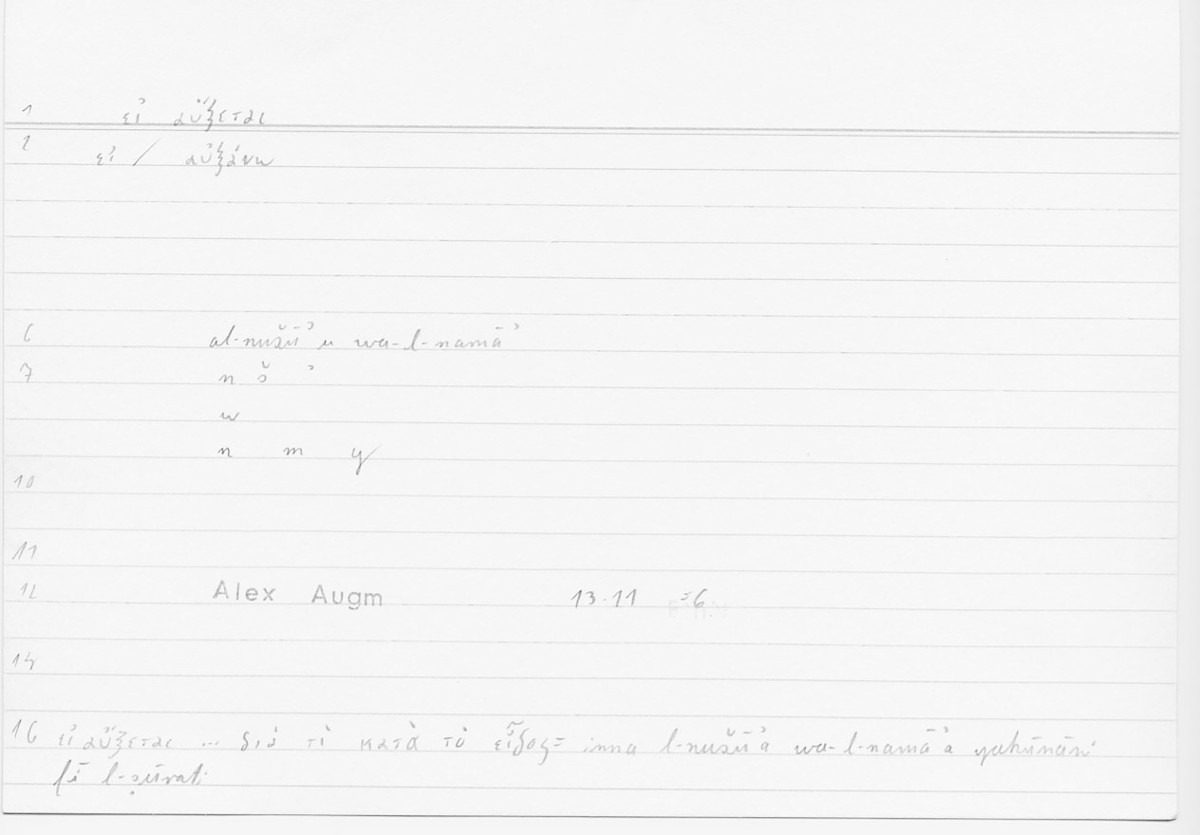 1 εἰ αὔξεται
2 εἰ / αὐξάνω
6 al-nušūʾu wa-l-namāʾ
7 n š ʾ
w
n m y
10
11
12 Alex Augm 13.11 =6
14
16 εἰ αὔξεται ... διὰ τί κατὰ τὸ εἶδος = inna l-nušūʾa wa-l-namāʾa yakūnāni
fī l-ṣūrati